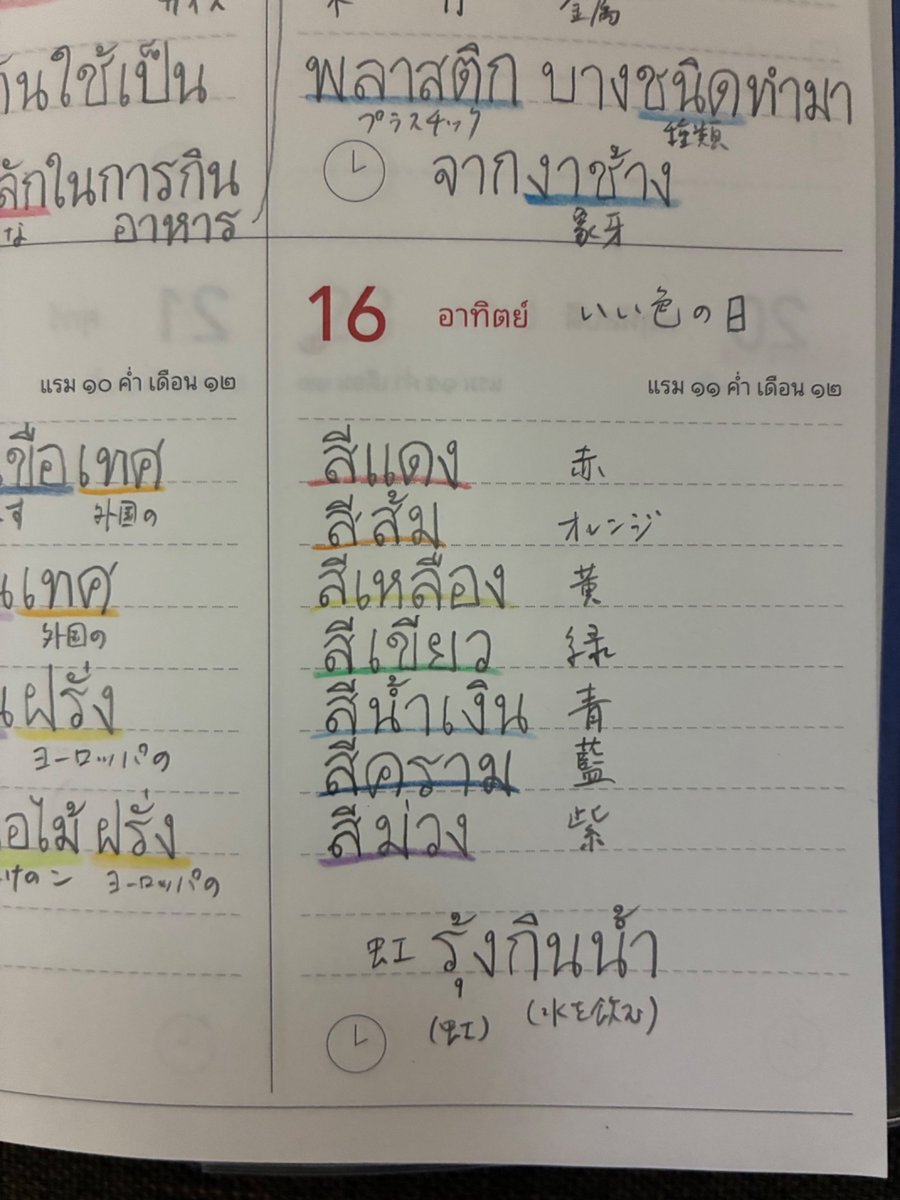 พลาสติก บางชนิดทำมา
プラスチック 種類
จากงาช้าง
象牙
นใช้เป็น
ลักในการกิน
な อาหาร
16 อาทิตย์ いい色の日
แรม ๑๑ ค่ำ เดือน ๑๒
สีแดง 赤
สีส้ม オレンジ
สีเหลือง 黄
สีเขียว 緑
สีน้ำเงิน 青
สีคราม 藍
สีม่วง 紫
虹 รุ้งกินน้ำ
(虹) (水を飲む)
แรม ๑๐ ค่ำ เดือน ๑๒
เทศ
外国の
เทศ
外国の
ฝรั่ง
ヨーロッパの
ไม้ ฝรั่ง
ヨーロッパの